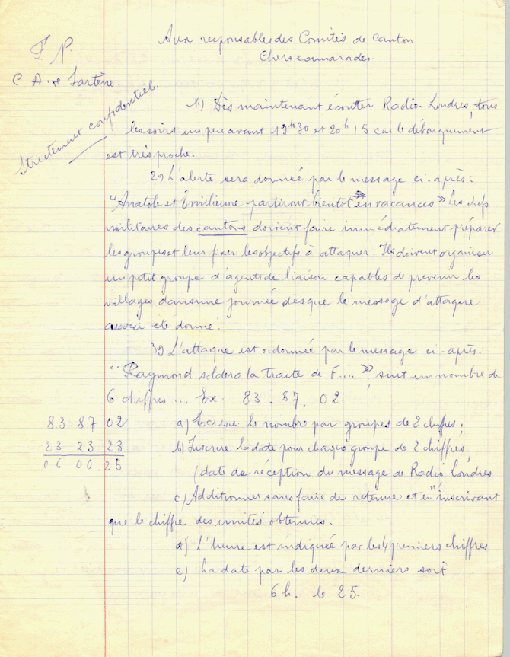 F. P.
C. A. Sartène
Strictement confidentiel
Aux responsables des Comités de Canton
Chers camarades
1) Dès maintenant écouter Radio-Londres, tous
les soirs un peu avant 19h30 et 20h15 car le débarquement
est très proche.
2) L'alerte sera donnée par le message ci-après:
"Anatole et Emilienne partiront bientôt en vacances" Les chefs
militaires des cantons doivent faire immédiatement préparer
les groupes et leur fixer les objectifs à attaquer. Ils doivent organiser
un petit groupe d'agents de liaison capables de prévenir les
villages dans une journée dès que le message d'attaque
aura été donné.
3) L'attaque est ordonnée par le message ci-après.
"Raymond soldera la traite de F...." suit un nombre de
6 chiffres ... Ex. 83. 87. 02
83-87 02
23-23 23
06 00 25
a) Ecrire le nombre par groupes de 2 chiffres;
b) Inscrire la date pour chaque groupe de 2 chiffres,
(date de réception du message de Radio Londres
c) Additionner sans faire de retenue et en inscrivant
que le chiffre des unités obtenues.
d) L'heure est indiquée par les 4 premiers chiffres
e) La date par les deux derniers soit
6h. le 25.